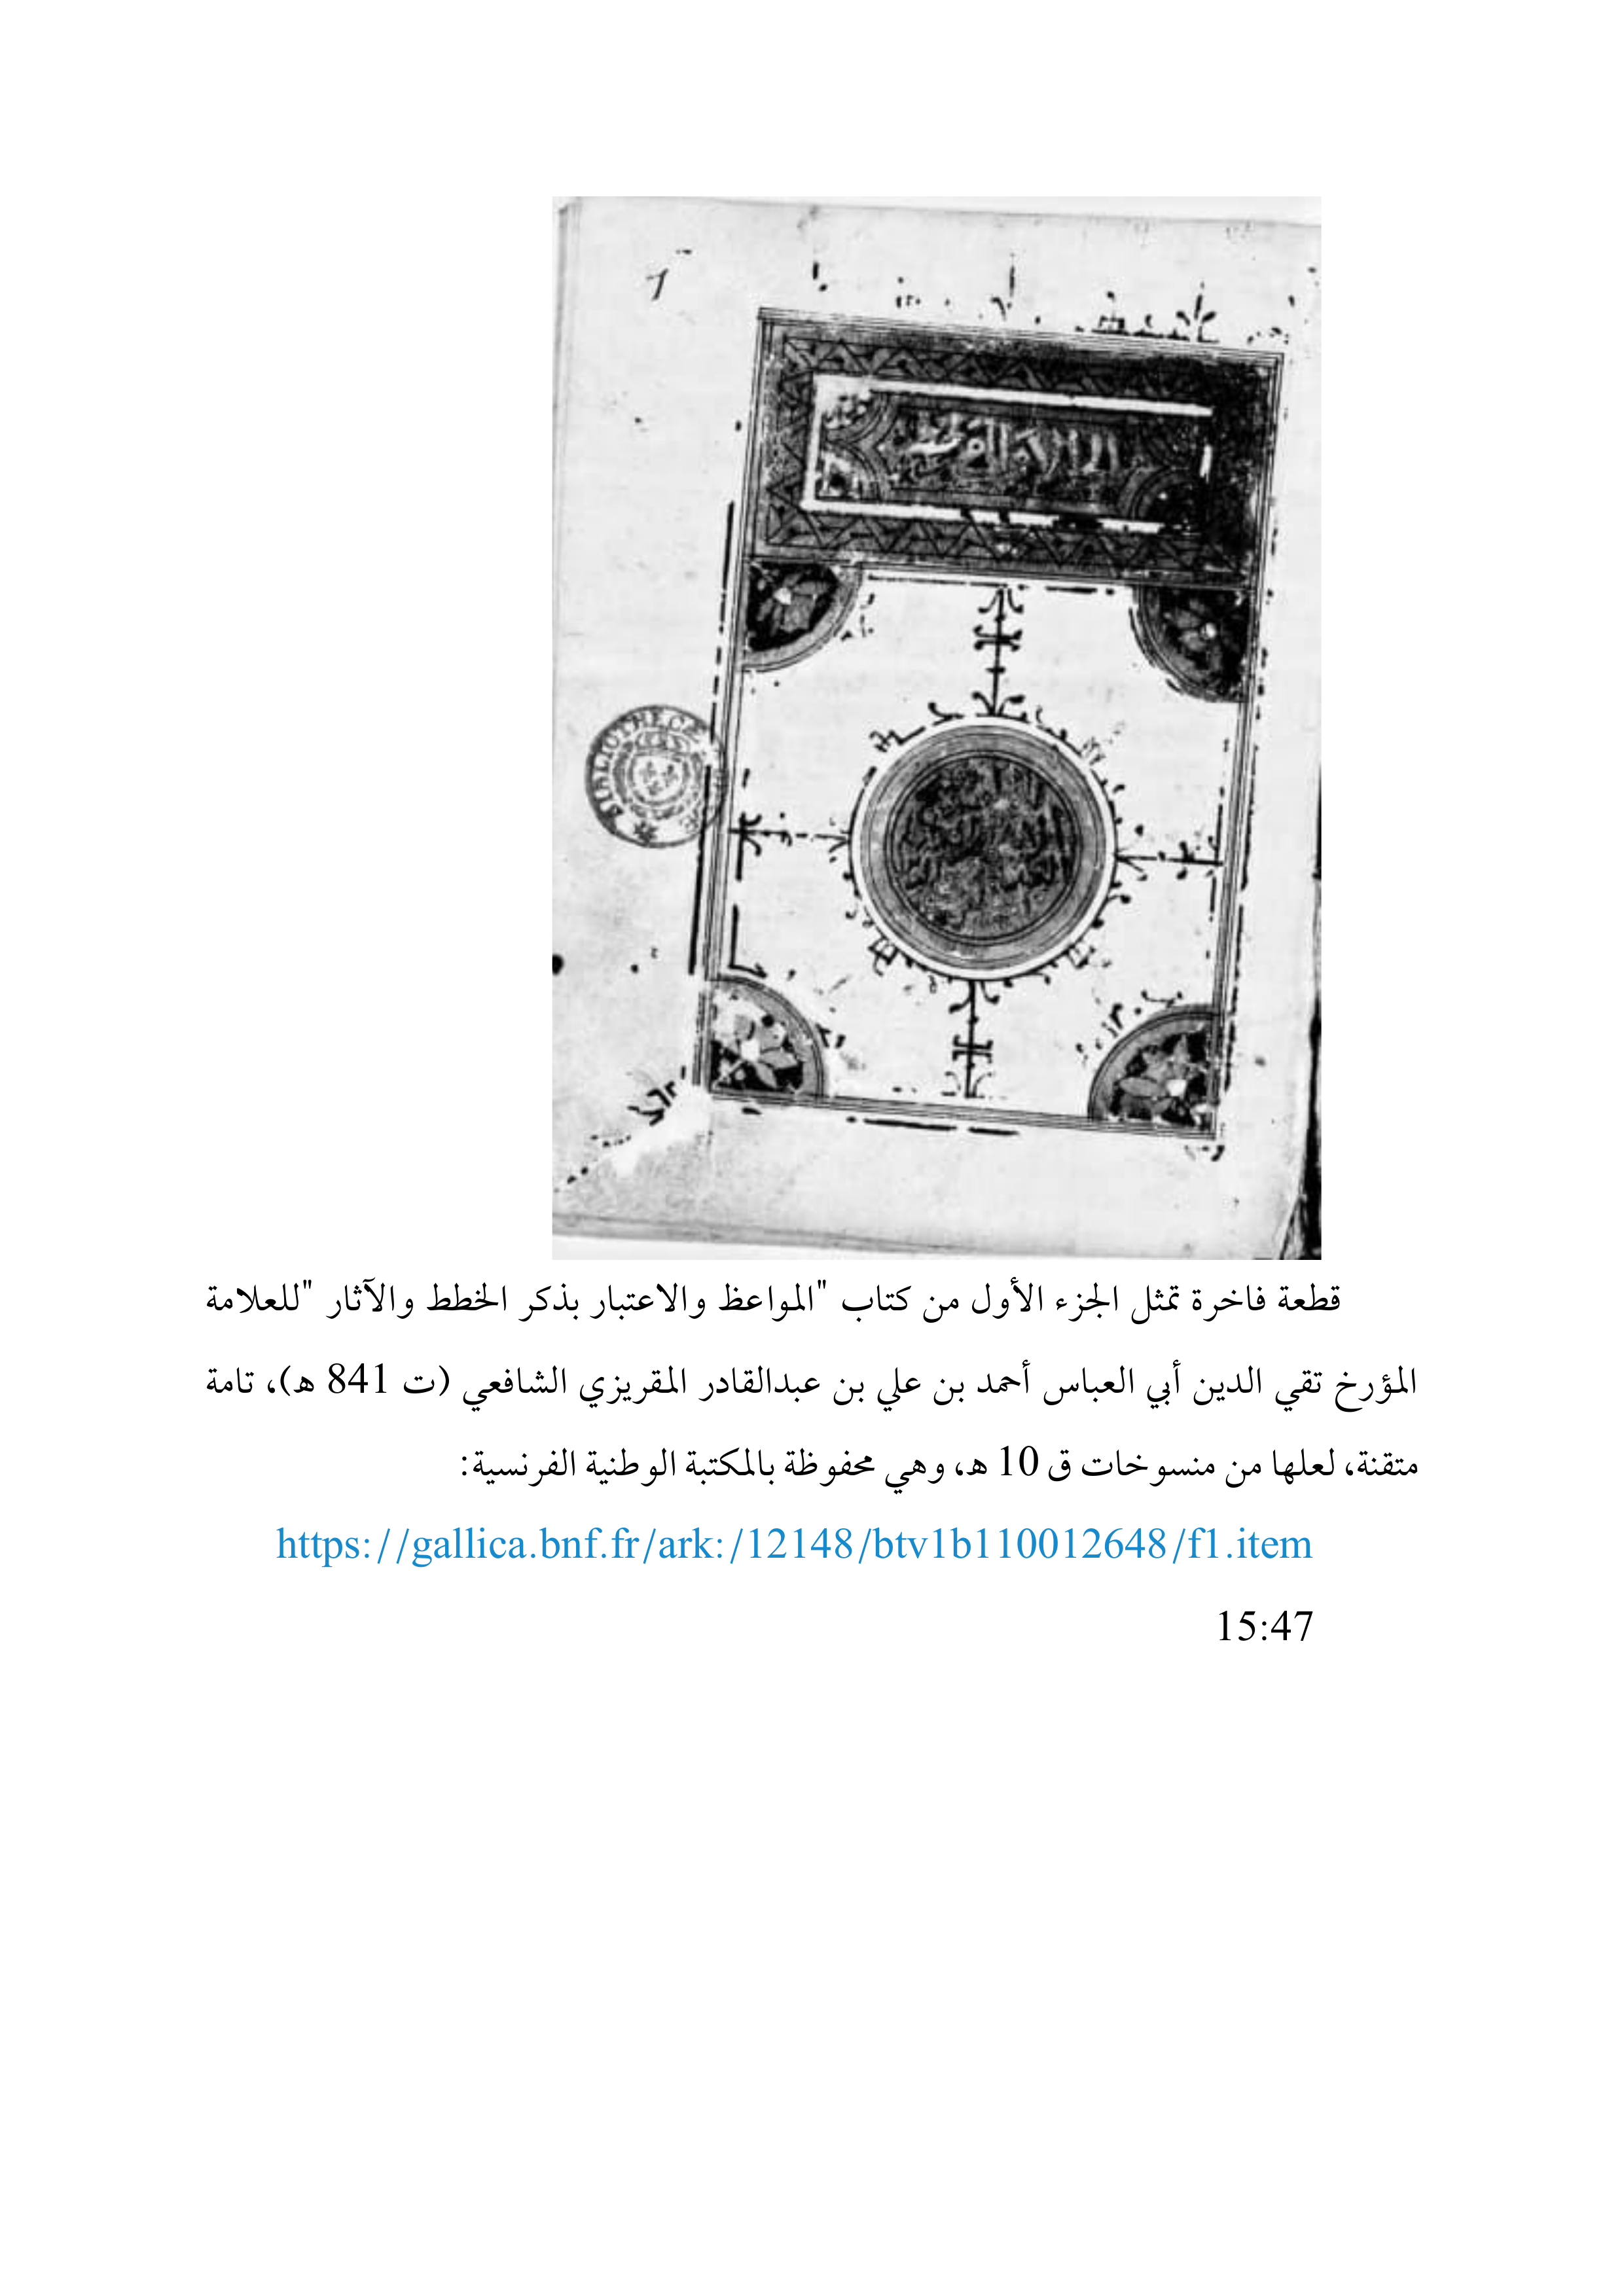 BIBLIOTHECA
قطعة فاخرة تمثل الجزء الأول من كتاب "المواعظ والاعتبار بذكر الخطط والآثار "للعلامة
المؤرخ تقي الدين أبي العباس أحمد بن علي بن عبدالقادر المقريزي الشافعي (ت 841 هـ)، تامة
متقنة، لعلها من منسوخات ق 10 هـ، وهي محفوظة بالمكتبة الوطنية الفرنسية:
https://gallica.bnf.fr/ark:/12148/btv1b110012648/f1.item
15:47